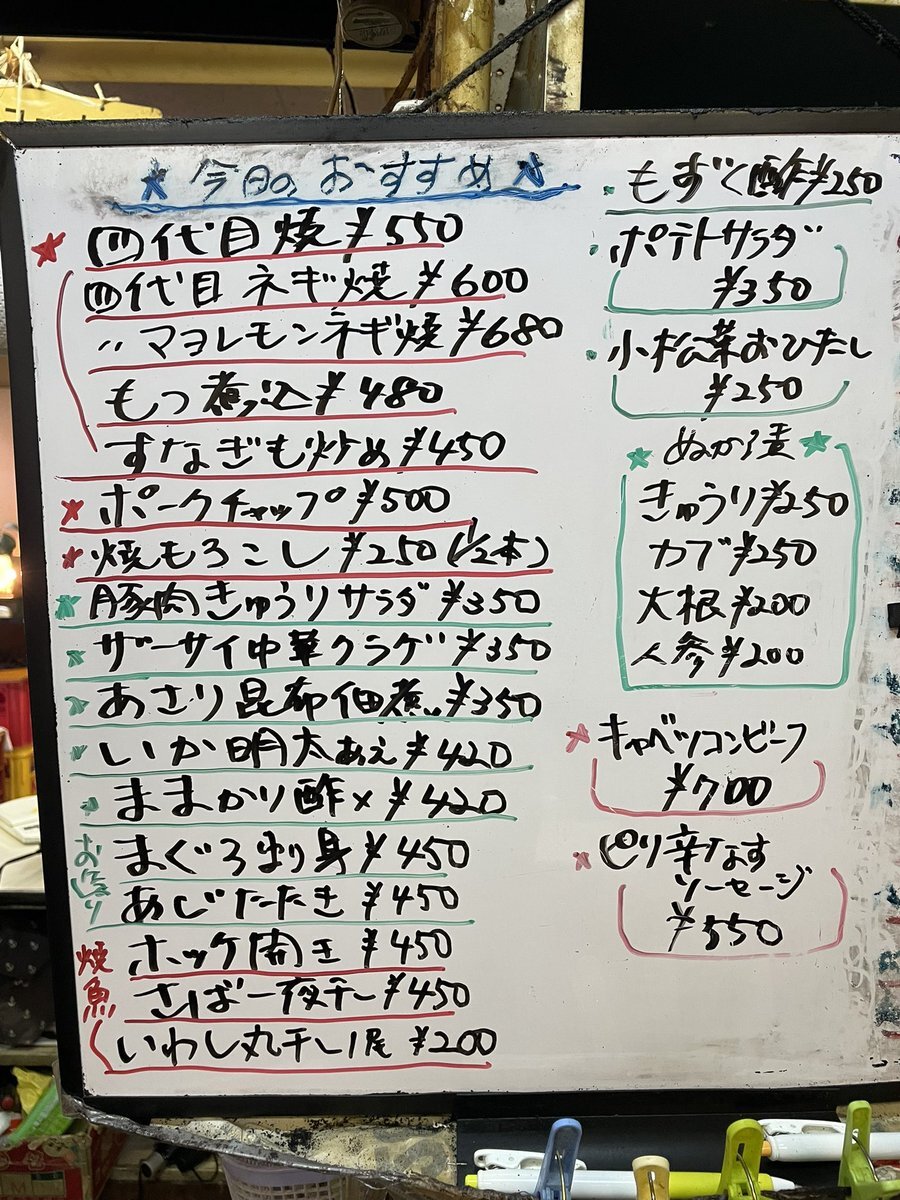 ★今日のおすすめ★
★四代目焼¥550
四代目ネギ焼¥600
〃マヨレモンネギ焼¥680
もつ煮込¥480
すなぎも炒め¥450
★ポークチャップ¥500
★焼もろこし¥250(1/2本)
★豚肉きゅうりサラダ¥350
★ザーサイ中華クラゲ¥350
★あさり昆布佃煮¥350
★いか明太あえ¥420
★ままかり酢〆¥420
お造り
まぐろ切り身¥450
あじたたき¥450
焼魚
ホッケ開き¥450
さば一夜干し¥450
いわし丸干し1尾¥200
もずく酢¥250
ポテトサラダ
¥350
小松菜おひたし
¥250
★ぬか漬★
きゅうり¥250
カブ¥250
大根¥200
人参¥200
★キャベツコンビーフ
¥700
★ピリ辛なす
ソーセージ
¥550